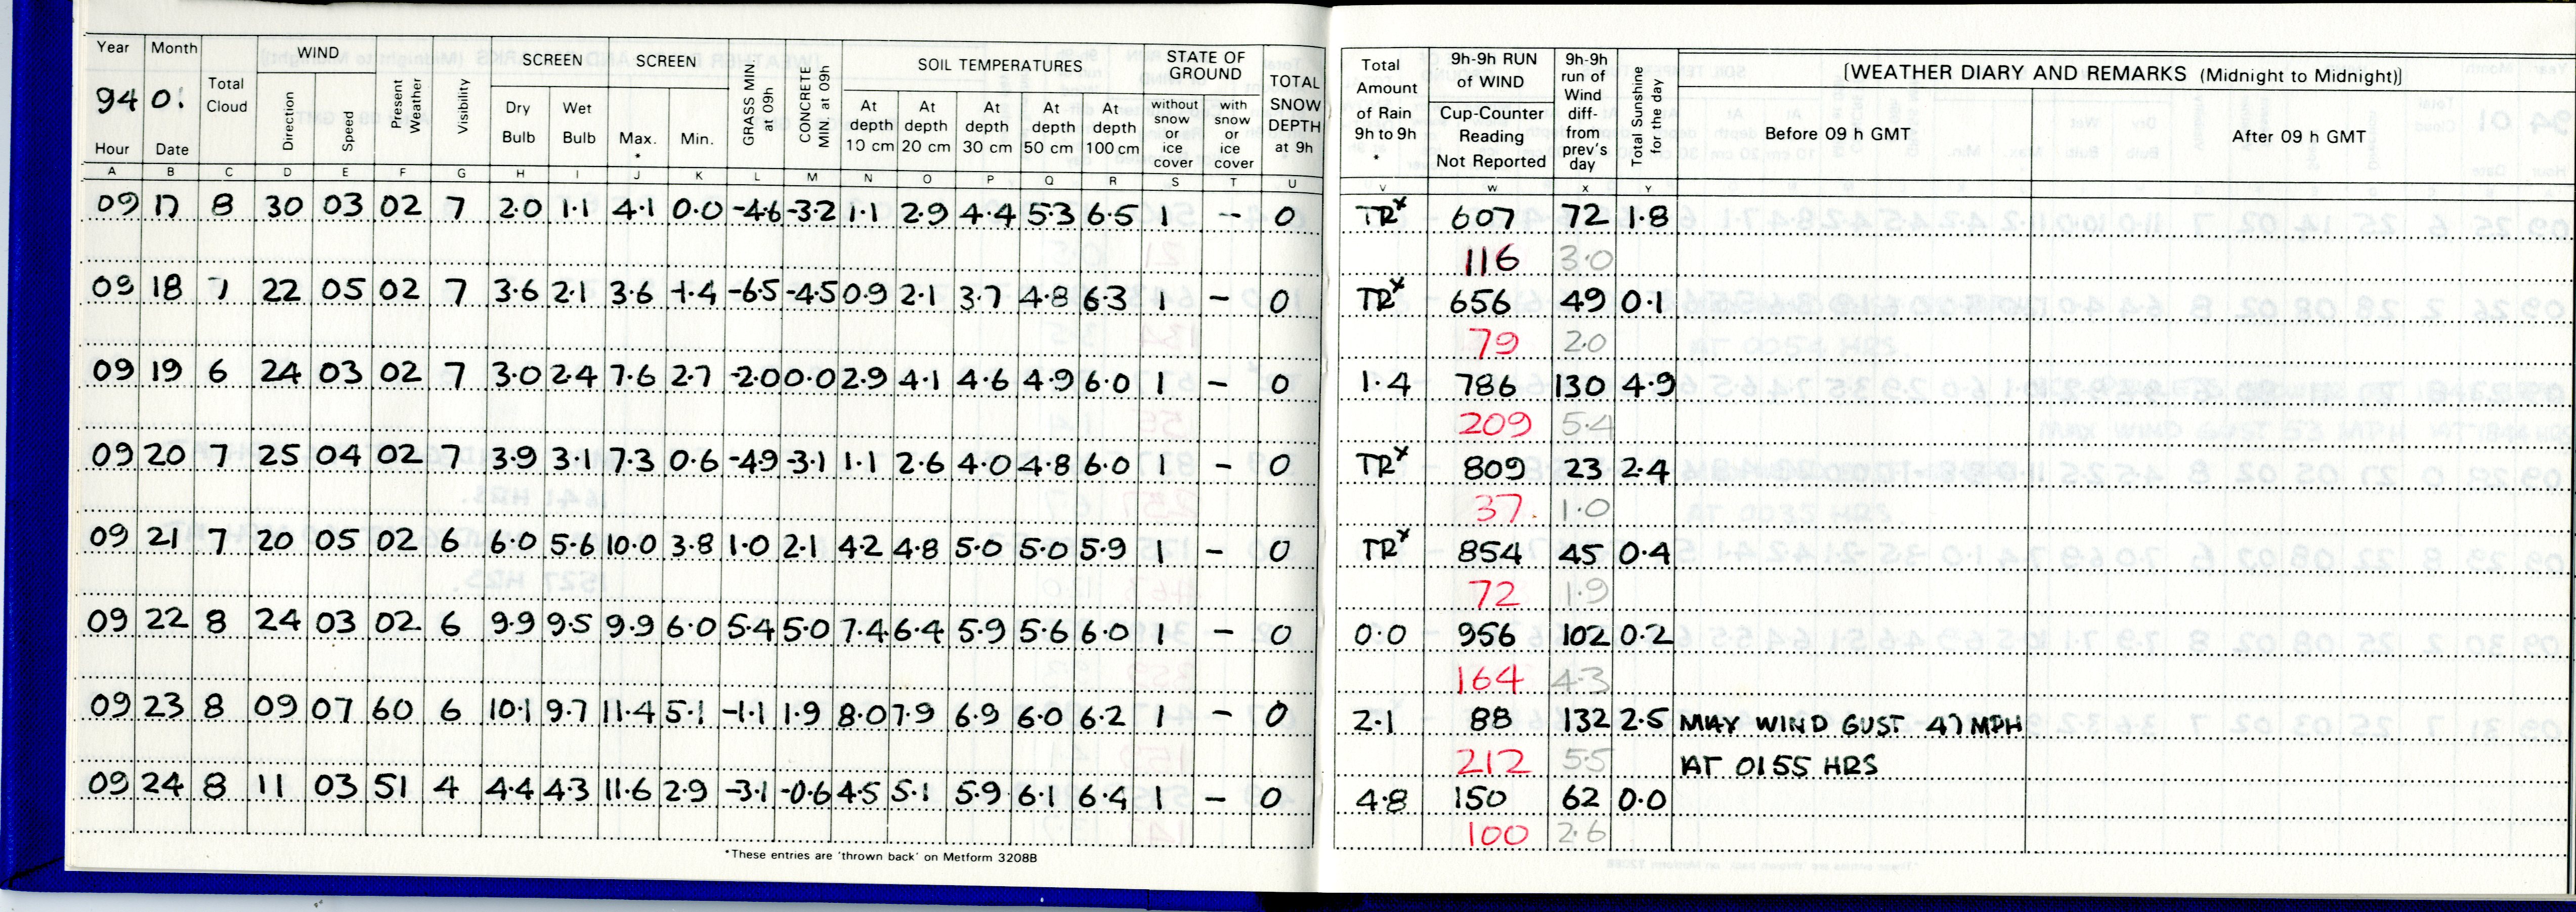 Year Month Total Cloud WIND Present Weather Visibility SCREEN SCREEN GRASS MIN at 09h CONCRETE MIN at 09h SOIL TEMPERATURES STATE OF GROUND TOTAL SNOW DEPTH at 9h Total Amount of Rain 9h to 9h * 9h-9h RUN OF WIND 9h-9h run of Wind diff- from prev's day Total Sunshine for the day [WEATHER DIARY AND REMARKS (Midnight to Midnight)]
94 0! Direction Speed Dry Bulb Wet Bulb Max. * Min. At depth 10 cm At depth 20 cm At depth 30 cm At depth 50 cm At depth 100 cm without snow or ice cover with snow or ice cover Cup-Counter Reading Not Reported Before 09 h GMT After 09 h GMT
Hour Date
A B C D E F G H I J K L M N O P Q R S T U V W X Y
09 17 8 30 03 02 7 2.0 1.1 4.1 0.0 -4.6 -3.2 1.1 2.9 4.4 5.3 6.5 1 -- 0 TRx 607 72 1.8
116 3.0
09 18 7 22 05 02 7 3.6 2.1 3.6 -1.4 -6.5 -4.5 0.9 2.1 3.7 4.8 6.3 1 - 0 TRx 656 49 0.1
79 2.0
09 19 6 24 03 02 7 3.0 2.4 7.6 2.7 -2.0 0.0 2.9 4.1 4.6 4.9 6.0 1 - 0 1.4 786 130 4.9
209 5.4
09 20 7 25 04 02 7 3.9 3.1 7.3 0.6 -4.9 -3.1 1.1 2.6 4.0 4.8 6.0 1 - 0 TRx 809 23 2.4
37. 1.0
09 21 7 20 05 02 6 6.0 5.6 10.0 3.8 1.0 2.1 4.2 4.8 5.0 5.0 5.9 1 - 0 TRx 854 45 0.4
72 1.9
09 22 8 24 03 02 6 9.9 9.5 9.9 6.0 5.4 5.0 7.4 6.4 5.9 5.6 6.0 1 - 0 0.0 956 102 0.2
164 4.3
09 23 8 09 07 60 6 10.1 9.7 11.4 5.1 -1.1 1.9 8.0 7.9 6.9 6.0 6.2 1 - 0 2.1 88 132 2.5 MAX WIND GUST 47 MPH
212 5.5 AT 0155 HRS
09 24 8 11 03 51 4 4.4 4.3 11.6 2.9 -3.1 -0.6 4.5 5.1 5.9 6.1 6.4 1 - 0 4.8 150 62 0.0
100 2.6
*These entries are 'thrown back' on Metform 3208B